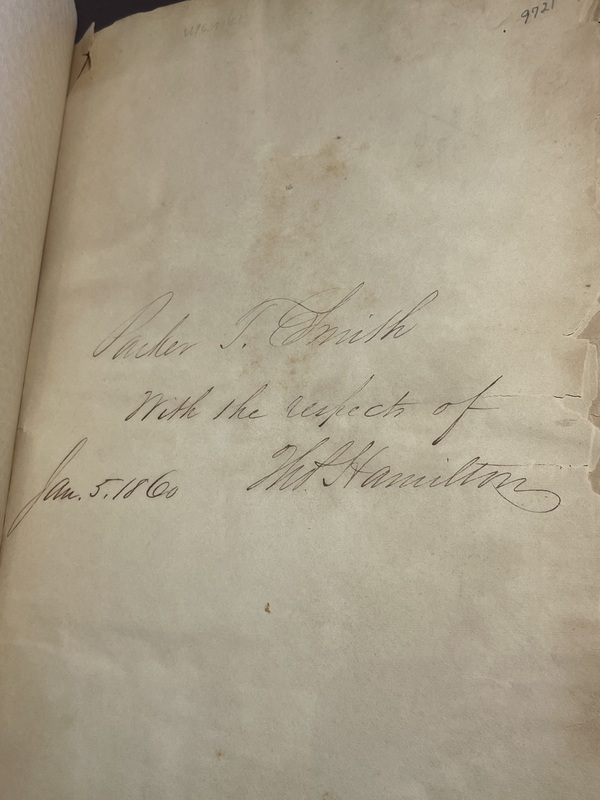 9721
Parker T. Smith
With the respects of
Jan. 5. 1860 Thos. Hamilton